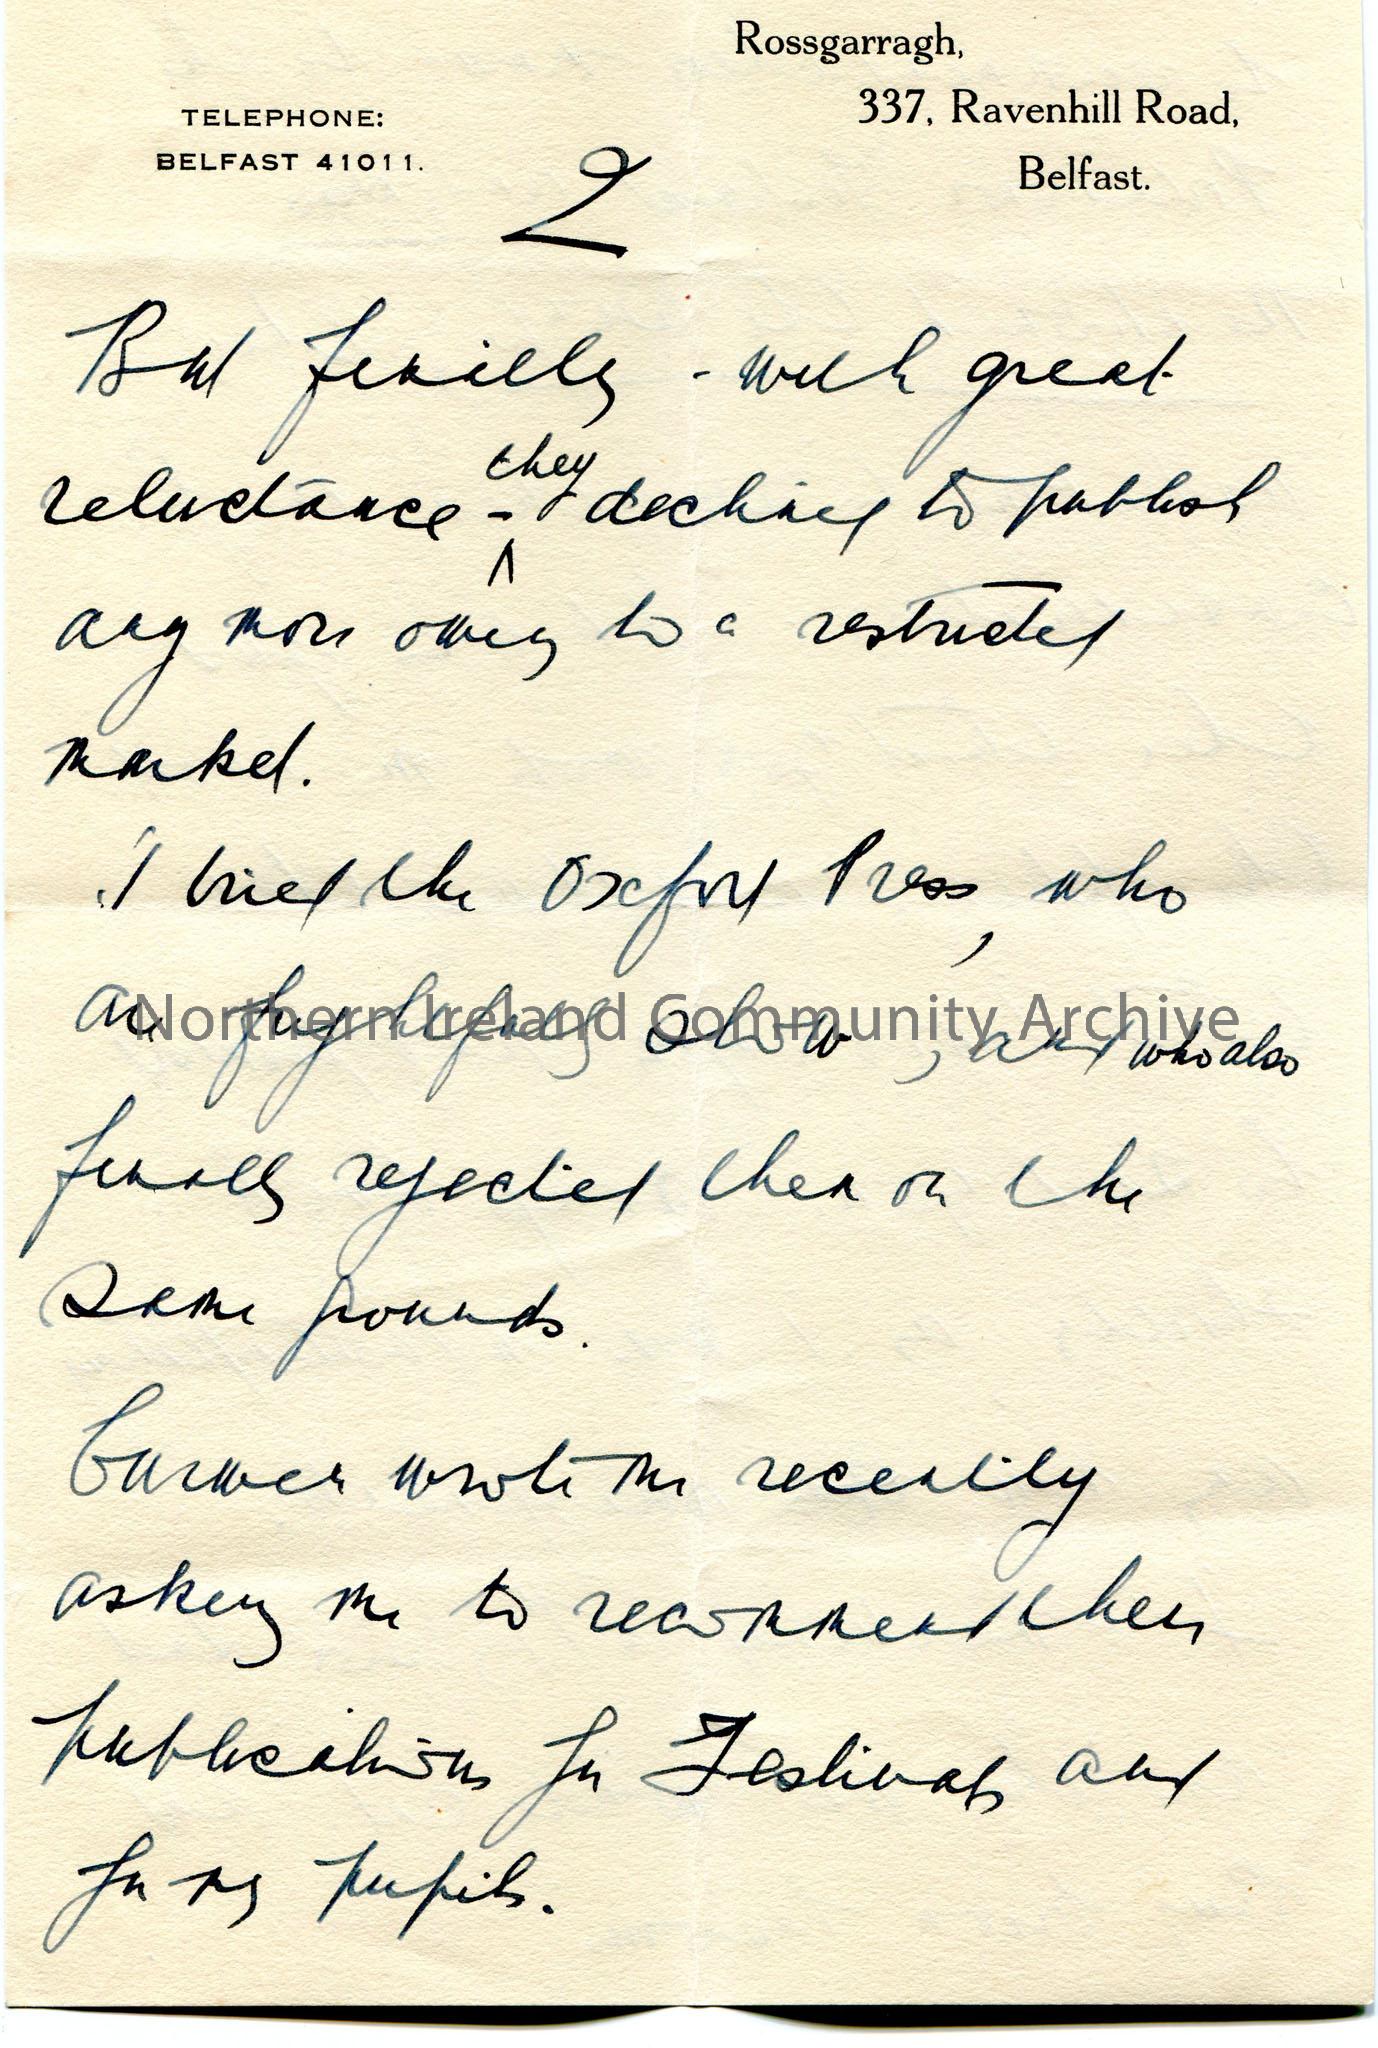 Rossgarragh,
TELEPHONE:
337, Ravenhill Road,
BELFAST 41011.
Belfast.
2
But finally - with great
reluctance - they declined to publish
any more owing to a restricted
market.
I tried the Oxford Press, who
are frightfully slow, and who also
Northern Ireland Community Archive
finally rejected them on the
same grounds.
Curwen wrote me recently
asking me to recommend their
publications for Festivals and
for my pupils.